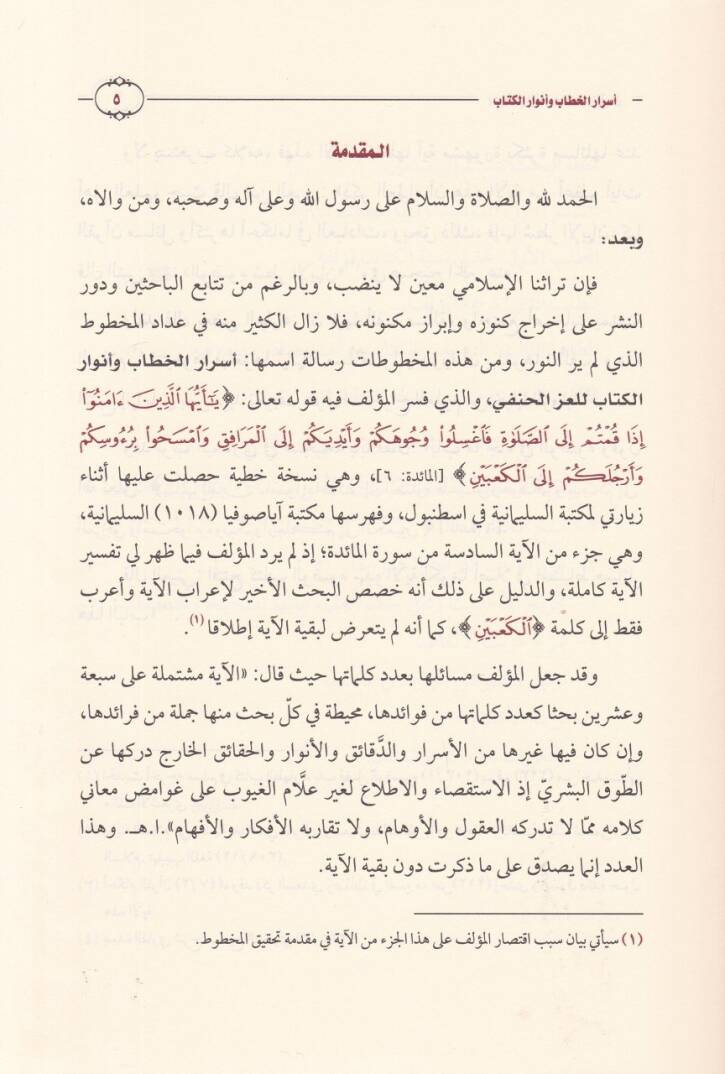 أسرار الخطاب وأنوار الكتاب
٥
المقدمة
الحمد لله والصلاة والسلام على رسول الله وعلى آله وصحبه، ومن والاه،
وبعد:
فإن تراثنا الإسلامي معين لا ينضب، وبالرغم من تتابع الباحثين ودور
النشر على إخراج كنوزه وإبراز مكنونه، فلا زال الكثير منه في عداد المخطوط
الذي لم ير النور، ومن هذه المخطوطات رسالة اسمها: أسرار الخطاب وأنوار
الكتاب للعز الحنفي، والذي فسر المؤلف فيه قوله تعالى: ﴿يَٰٓأَيُّهَا ٱلَّذِينَ ءَامَنُوٓاْ
إِذَا قُمۡتُمۡ إِلَى ٱلصَّلَوٰةِ فَٱغۡسِلُواْ وُجُوهَكُمۡ وَأَيۡدِيَكُمۡ إِلَى ٱلۡمَرَافِقِ وَٱمۡسَحُواْ بِرُءُوسِكُمۡ
وَأَرۡجُلَكُمۡ إِلَى ٱلۡكَعۡبَيۡنِ﴾ [المائدة: ٦]، وهي نسخة خطية حصلت عليها أثناء
زيارتي لمكتبة السليمانية في اسطنبول، وفهرسها مكتبة آياصوفيا (١٠١٨) السليمانية،
وهي جزء من الآية السادسة من سورة المائدة؛ إذ لم يرد المؤلف فيما ظهر لي تفسير
الآية كاملة، والدليل على ذلك أنه خصص البحث الأخير لإعراب الآية وأعرب
فقط إلى كلمة ﴿ٱلۡكَعۡبَيۡنِ﴾، كما أنه لم يتعرض لبقية الآية إطلاقا(١).
وقد جعل المؤلف مسائلها بعدد كلماتها حيث قال: «الآية مشتملة على سبعة
وعشرين بحثا كعدد كلماتها من فوائدها، محيطة في كلّ بحث منها جملة من فرائدها،
وإن كان فيها غيرها من الأسرار والدَّقائق والأنوار والحقائق الخارج دركها عن
الطّوق البشريّ إذ الاستقصاء والاطلاع لغير علَّام الغيوب على غوامض معاني
كلامه ممّا لا تدركه العقول والأوهام، ولا تقاربه الأفكار والأفهام».ا.هـ. وهذا
العدد إنما يصدق على ما ذكرت دون بقية الآية.
(١) سيأتي بيان سبب اقتصار المؤلف على هذا الجزء من الآية في مقدمة تحقيق المخطوط.